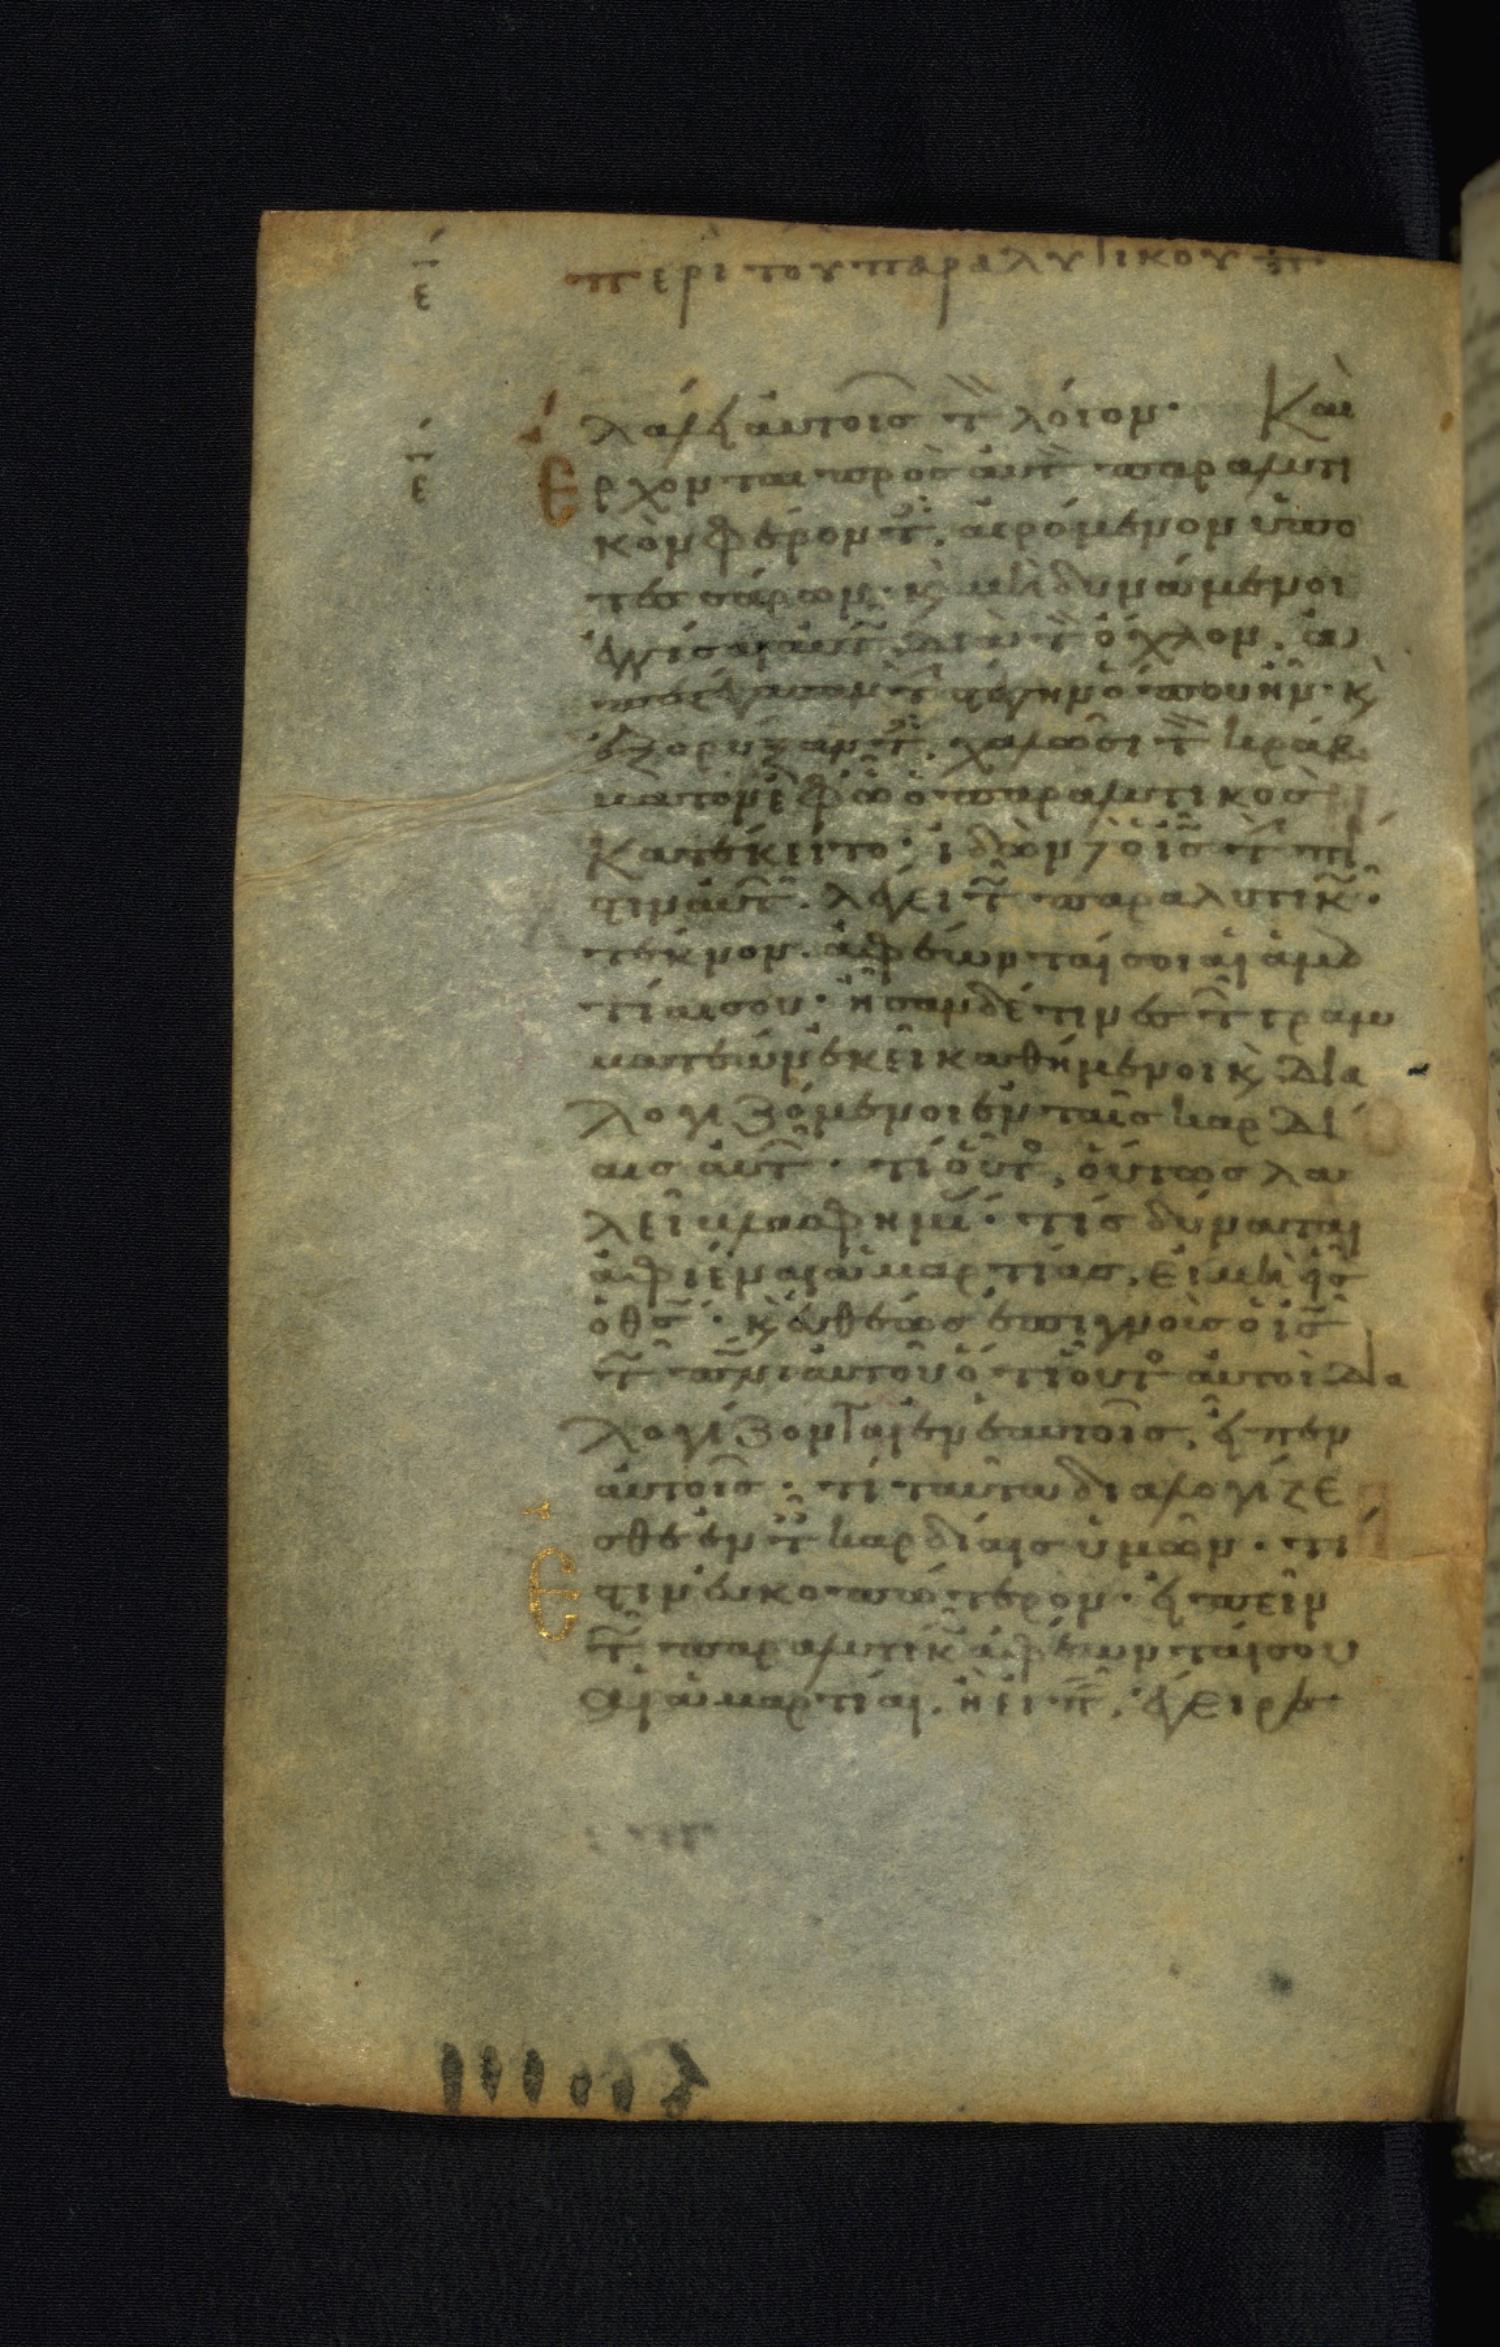 ε
περι του παραλυτικου
λάλει αυτοῖς τ λόγον· Καὶ
ε
Ερχονται πρὸς αυτ παραλυτι
κὸν φέροντ, αἰρόμενον ὑπο
τεσσάρων· κ μὴ δυνάμενοι
ἐγγίσαι αυτ διὰ τ ὄχλον, ἀ
πεστέγασαν τ στέγην ὅπου ἦν· κ
ἐξορύξαντ, χαλῶσι τ κράβ
βατον ἐφ ὧ ὁ παραλυτικὸσ
Κατέκειτο· ἰδὼν δὲ ὁ ισ τ πί
στιν αυτ· λέγει τ παραλυτικ·
τέκνον· ἀφέωνται σοι αἱ ἁμαρ
τίαι σου· ἦσαν δέ τινεσ τ γραμ
ματέων ἐκεῖ καθήμενοι κ δια
λογιζόμενοι ἐν ταῖσ καρδί
αισ αὐτ· τί οὗτ, οὕτωσ λα
λεῖ βλασφημί· τίσ δύναται
ἀφιέναι ἁμαρτίασ, εἰ μὴ εἷσ
ὁ θσ· κ εὐθέωσ ἐπιγνοὺσ ὁ ισ
τ πνι αυτοῦ ὅτι οὕτ αὐτοὶ δια
λογίζονται ἐν ἑαυτοῖσ, εἶπεν
αὐτοῖσ· τί ταῦτα διαλογίζε
σθε ἐν τ καρδίαισ ὑμῶν· τί
Ε στιν εὐκοπώτερον· εἰπεῖν
τ παραλυτικ ἀφέωνταί σου
αἱ ἁμαρτίαι, ἢ εἰπ, ἔγειρε